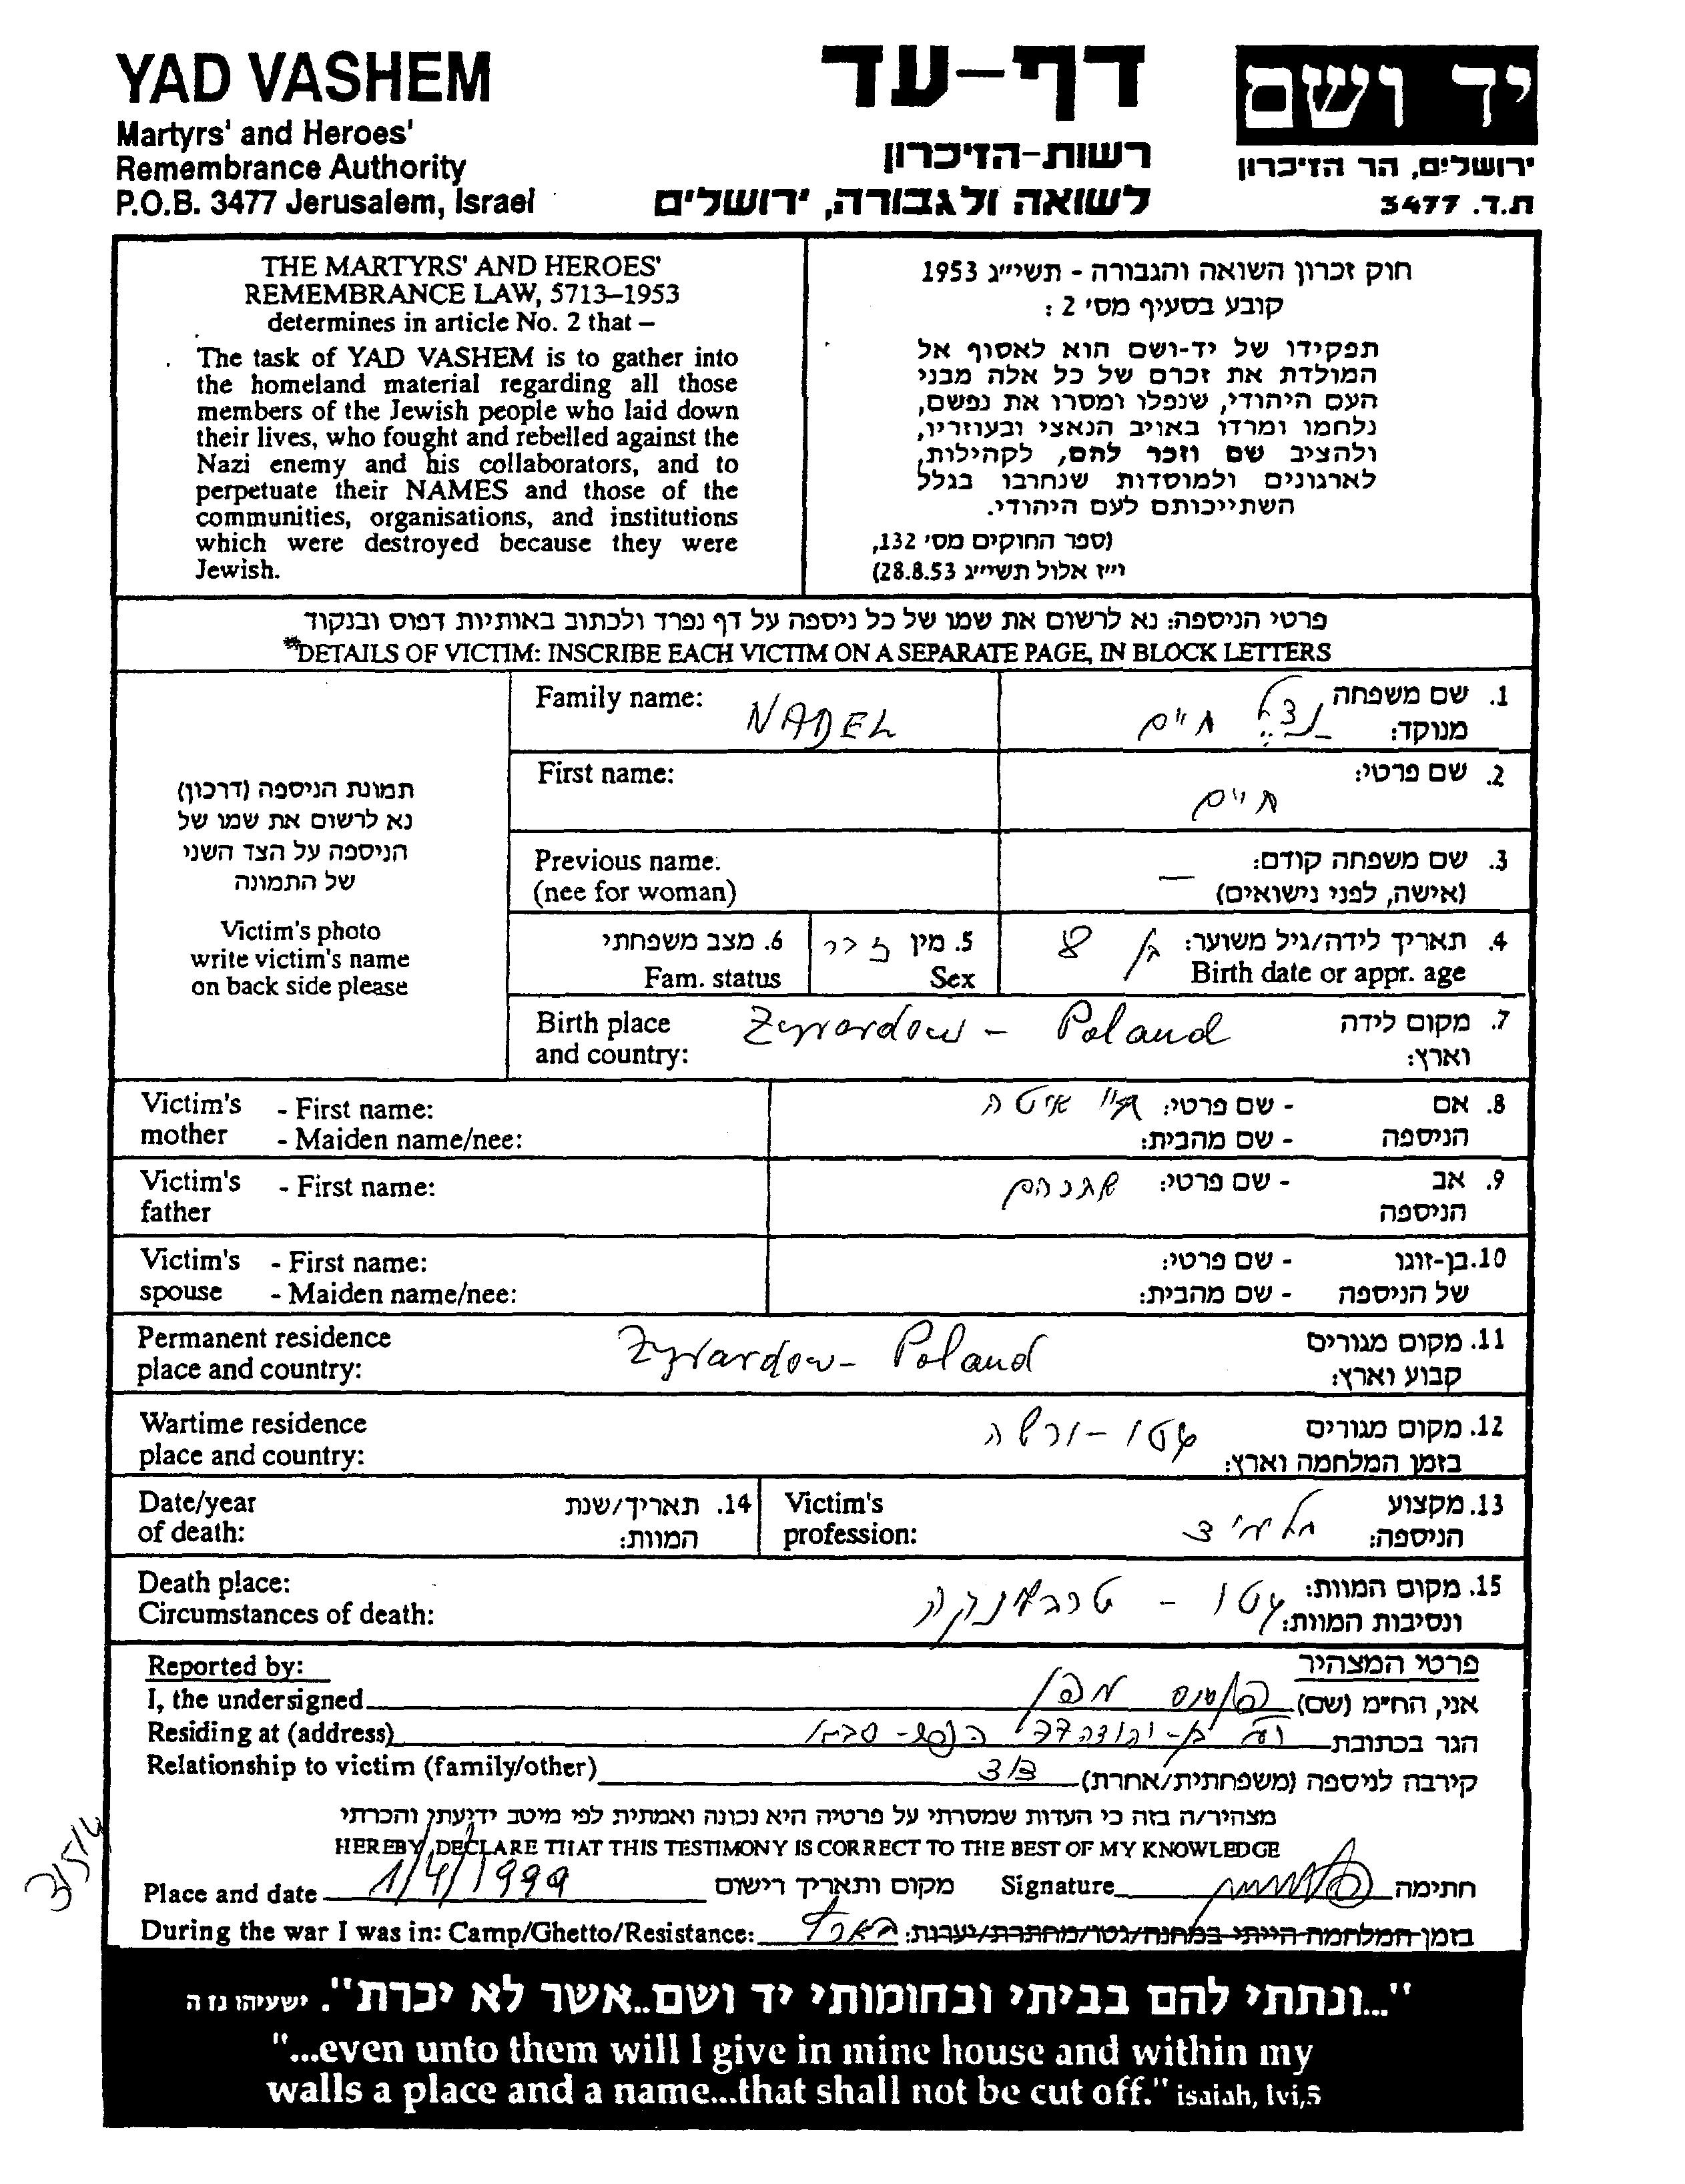 YAD VASHEM
Martyrs' and Heroes'
Remembrance Authority
P.O.B. 3477 Jerusalem, Israel
דף-עד
רשות-הזיכרון
לשואה ולגבורה, ירושלים
יד ושם
ירושלים, הר הזיכרון
ת.ד. 3477
THE MARTYRS' AND HEROES'
REMEMBRANCE LAW, 5713–1953
determines in article No. 2 that –
The task of YAD VASHEM is to gather into
the homeland material regarding all those
members of the Jewish people who laid down
their lives, who fought and rebelled against the
Nazi enemy and his collaborators, and to
perpetuate their NAMES and those of the
communities, organisations, and institutions
which were destroyed because they were
Jewish.
חוק זכרון השואה והגבורה - תשי״ג 1953
קובע בסעיף מס' 2 :
תפקידו של יד-ושם הוא לאסוף אל
המולדת את זכרם של כל אלה מבני
העם היהודי, שנפלו ומסרו את נפשם,
נלחמו ומרדו באויב הנאצי ובעוזריו,
ולהציב שם וזכר להם, לקהילות,
לארגונים ולמוסדות שנחרבו בגלל
השתייכותם לעם היהודי.
(ספר החוקים מס' 132,
י״ז אלול תשי״ג 28.8.53)
פרטי הניספה: נא לרשום את שמו של כל ניספה על דף נפרד ולכתוב באותיות דפוס ובנקוד
DETAILS OF VICTIM: INSCRIBE EACH VICTIM ON A SEPARATE PAGE, IN BLOCK LETTERS
תמונת הניספה (דרכון)
נא לרשום את שמו של
הניספה על הצד השני
של התמונה
Victim's photo
write victim's name
on back side please
Family name: NADEL
1. שם משפחה
מנוקד: חיים
First name:
2. שם פרטי: חיים
Previous name:
(nee for woman)
3. שם משפחה קודם: —
(אישה, לפני נישואים)
4. תאריך לידה/גיל משוער: בן 8
Birth date or appr. age
5. מין זכר
Sex
6. מצב משפחתי
Fam. status
Birth place
and country: Zyrardow – Poland
7. מקום לידה
וארץ:
Victim's mother - First name:
- Maiden name/nee:
8. אם הניספה - שם פרטי: חיי איטה
- שם מהבית:
Victim's father - First name:
9. אב הניספה - שם פרטי:
Victim's spouse - First name:
- Maiden name/nee:
10. בן-זוגו של הניספה - שם פרטי:
- שם מהבית:
Permanent residence
place and country: Zyrardow – Poland
11. מקום מגורים
קבוע וארץ:
Wartime residence
place and country:
12. מקום מגורים
בזמן המלחמה וארץ: גטו - ורשה
Date/year
of death:
14. תאריך/שנת
המוות:
Victim's
profession:
13. מקצוע
הניספה: תלמיד
Death place:
Circumstances of death:
15. מקום המוות:
ונסיבות המוות: גטו - טרבלינקה
Reported by:
פרטי המצהיר
I, the undersigned
אני, הח״מ (שם)
Residing at (address)
הגר בכתובת
Relationship to victim (family/other)
קירבה לניספה (משפחתית/אחרת) דוד
מצהיר/ה בזה כי העדות שמסרתי על פרטיה היא נכונה ואמתית לפי מיטב ידיעתי והכרתי
HEREBY DECLARE THAT THIS TESTIMONY IS CORRECT TO THE BEST OF MY KNOWLEDGE
Place and date 1/4/1999 מקום ותאריך רישום
Signature חתימה
During the war I was in: Camp/Ghetto/Resistance:
בזמן המלחמה הייתי במחנה/גטו/מחתרת/יערות: בארץ
"...ונתתי להם בביתי ובחומותי יד ושם..אשר לא יכרת". ישעיהו נו ה
"...even unto them will I give in mine house and within my
walls a place and a name...that shall not be cut off." isaiah, lvi,5